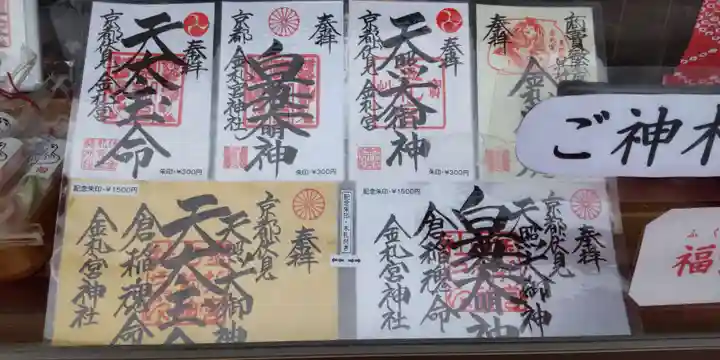 奉拝
天太玉命
京都伏見 金札宮
朱印・¥300円
奉拝
白菊大明神
京都 金札宮神社
朱印・¥300円
奉拝
天照大御神
京都伏見 金札宮
朱印・¥300円
金札
ご神札
記念朱印・¥1500円
奉拝
京都伏見
天照大御神
天太玉命
倉稲魂命
金札宮神社
記念朱印・木札付き
記念朱印・¥1500円
奉拝
京都伏見
天照大御神
白菊大明神
倉稲魂命
金札宮神社
ふく
福